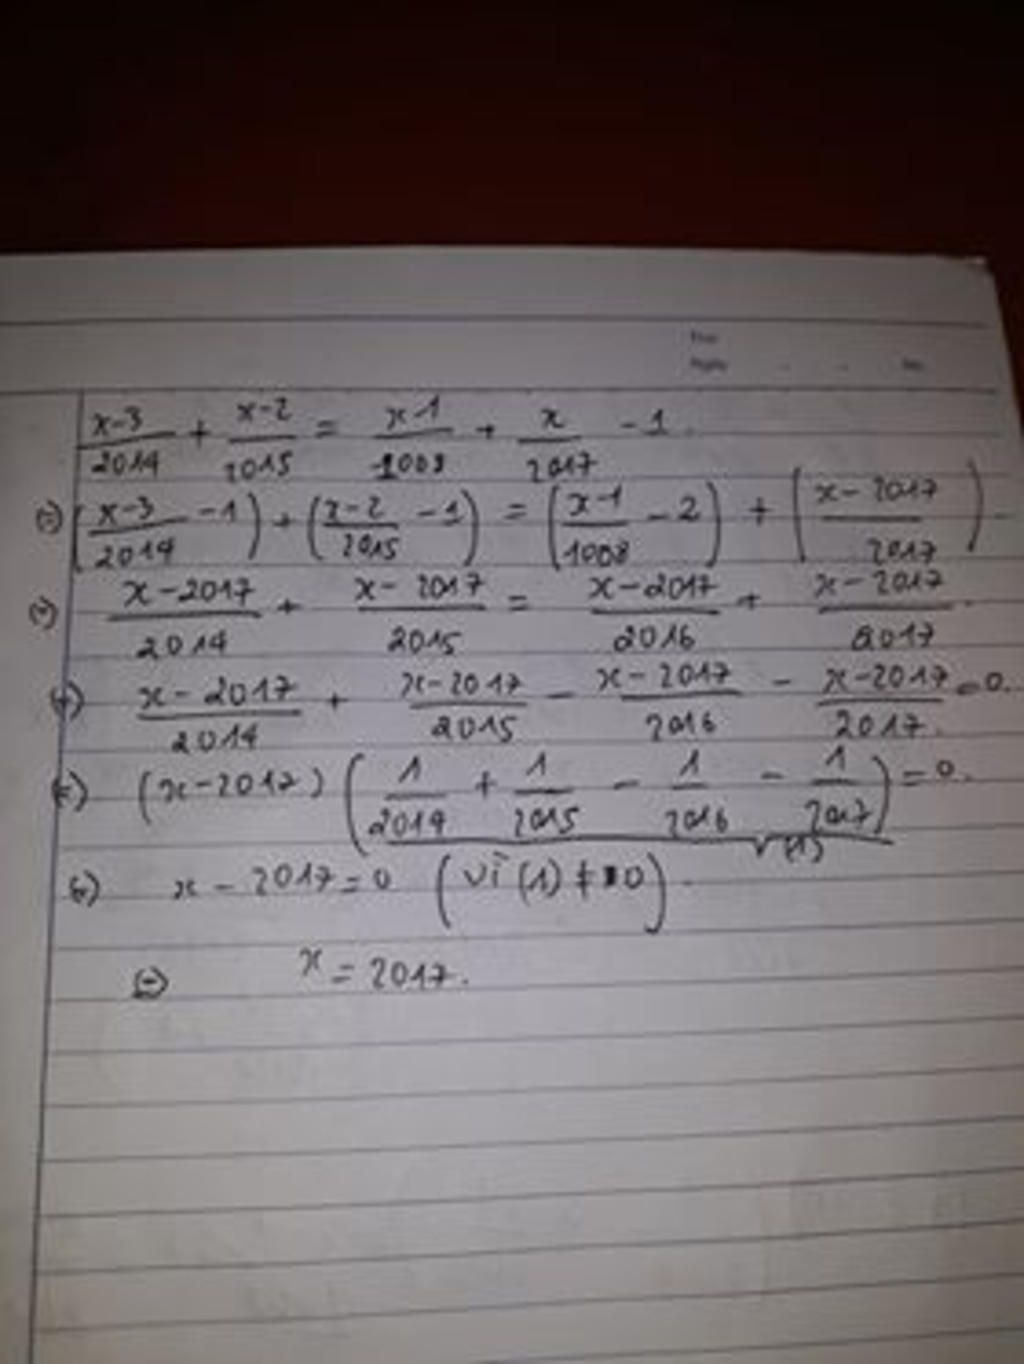 x-3/2014 + x-2/2015 = x-1/1008 + x/2017 - 1.
(=) (x-3/2014 - 1) + (x-2/2015 - 1) = (x-1/1008 - 2) + (x-2017/2017)
(=) x-2017/2014 + x-2017/2015 = x-2017/2016 + x-2017/2017.
(=) x-2017/2014 + x-2017/2015 - x-2017/2016 - x-2017/2017 = 0.
(=) (x-2017) (1/2014 + 1/2015 - 1/2016 - 1/2017) = 0.
(1)
(=) x - 2017 = 0 (vì (1) ≠ 0).
(=) x = 2017.